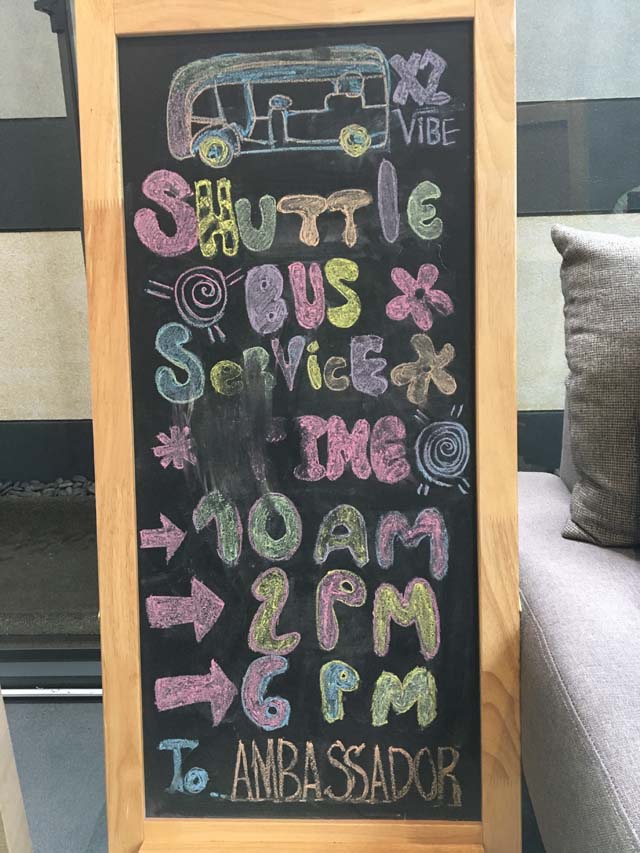 X2
ViBE
SHUTTlE
BUS
SerVicE
IME
10 AM
2 PM
6 PM
To AMBASSADOR